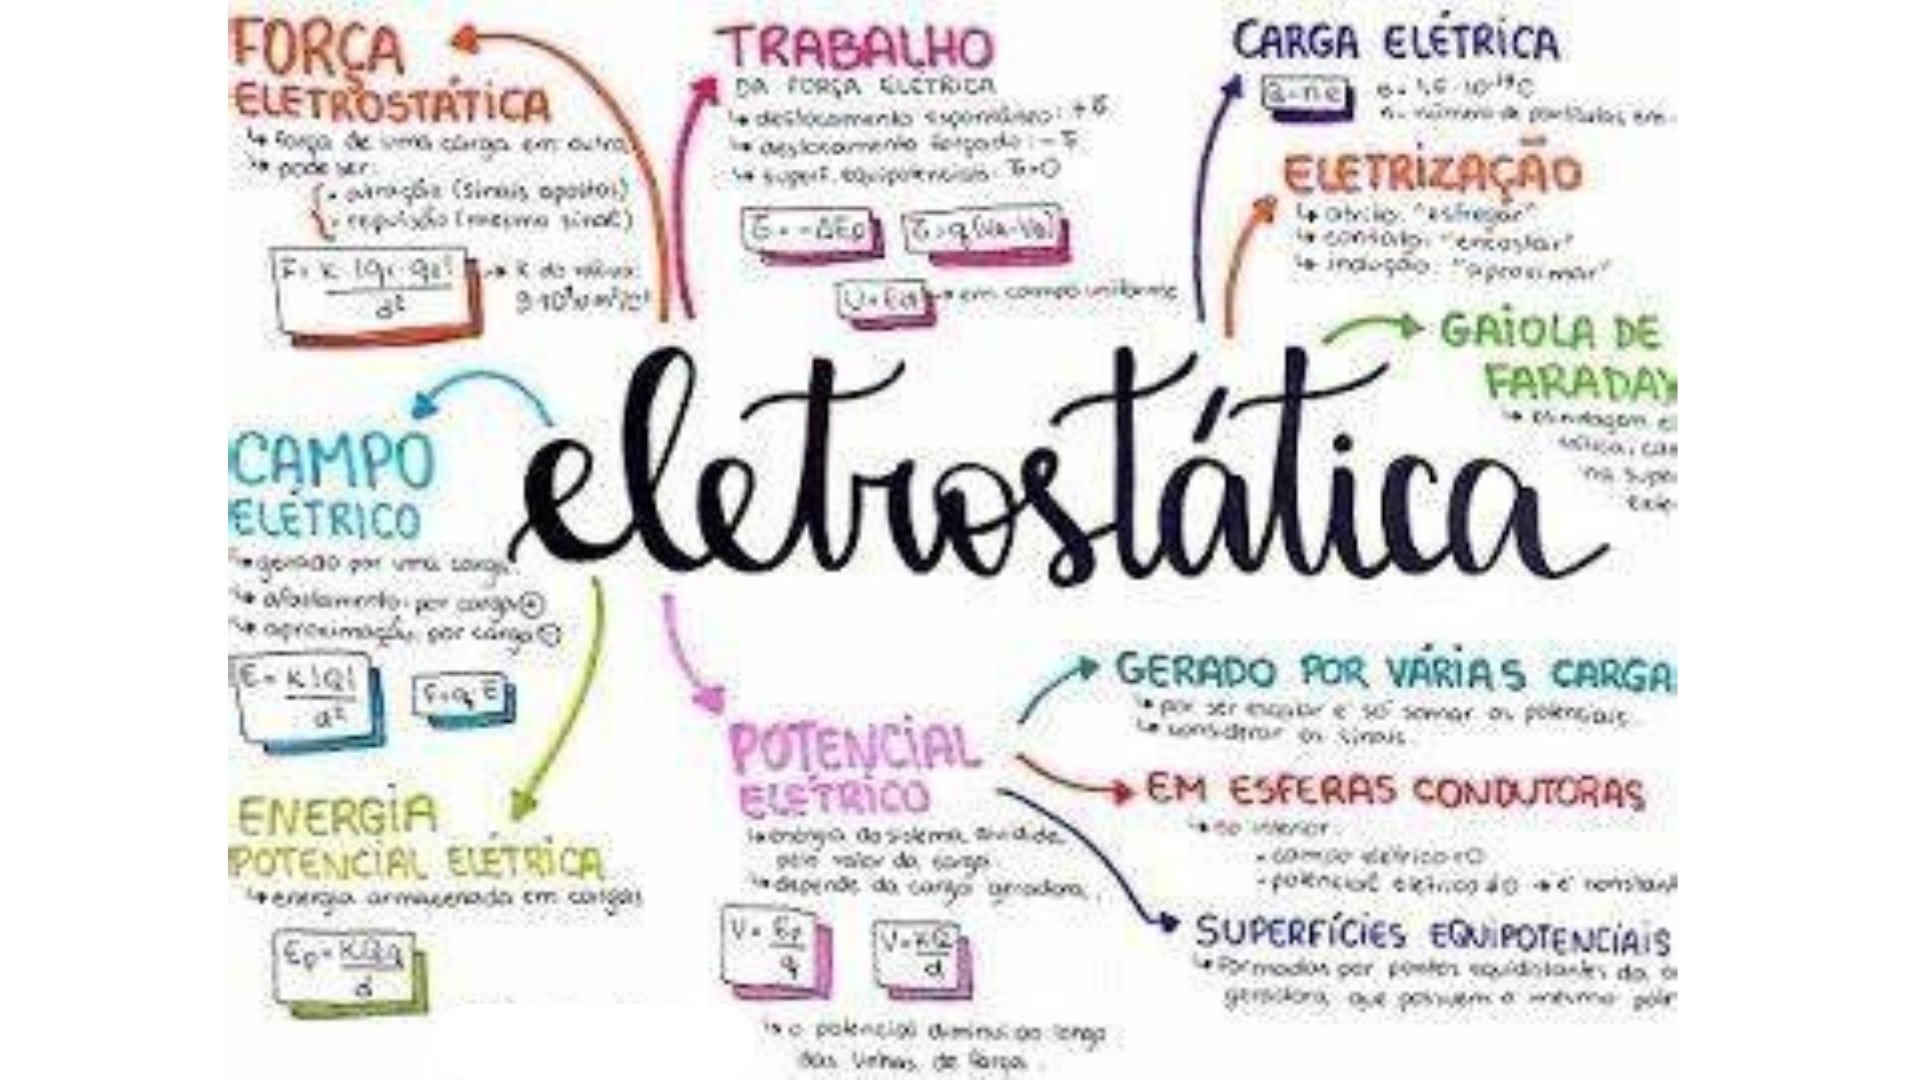 FORÇA
ELETROSTÁTICA
↳ força de uma carga em outra
↳ pode ser:
• atração (sinais opostos)
• repulsão (mesmo sinal)
F = K |q₁ · q₂|
d²
→ K do vácuo:
9·10⁹ N·m²/C²
TRABALHO
DA FORÇA ELÉTRICA
↳ deslocamento espontâneo: + τ
↳ deslocamento forçado: - τ
↳ superf. equipotenciais: τ = 0
τ = -ΔEp
τ = q (Va-Vb)
U = Ed
→ em campo uniforme
CARGA ELÉTRICA
Q = n·e
e = 1,6 · 10⁻¹⁹ C
n = número de partículas em
ELETRIZAÇÃO
↳ atrito: "esfregar"
↳ contato: "encostar"
↳ indução: "aproximar"
GAIOLA DE
FARADAY
↳ blindagem
na super
CAMPO
ELÉTRICO
↳ gerado por uma carga
↳ afastamento: por carga +
↳ aproximação: por carga -
E = K |Q|
d²
F = q · E
eletrostática
ENERGIA
POTENCIAL ELÉTRICA
↳ energia armazenada em cargas
Ep = KQq
d
POTENCIAL
ELÉTRICO
↳ energia do sistema dividida
pelo valor da carga
↳ depende da carga geradora
V = Ep
q
V = KQ
d
↳ o potencial diminui ao longo
das linhas de força
GERADO POR VÁRIAS CARGA
↳ por ser escalar é só somar os potenciais
↳ considerar os sinais
EM ESFERAS CONDUTORAS
↳ no interior:
• campo elétrico = 0
• potencial elétrico ≠ 0 → é constant
SUPERFÍCIES EQUIPOTENCIAIS
↳ Formadas por pontos equidistantes da
geradora, que possuem o mesmo